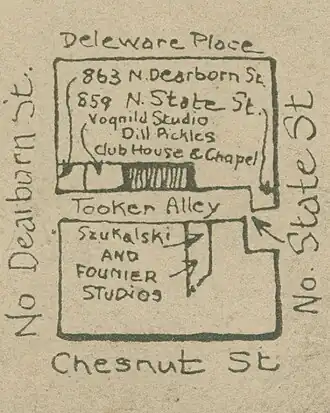 Deleware Place
863 N. Dearborn St.
859 N. State St.
Vognild Studio
Dill Pickles
Club House & Chapel
Tooker Alley
Szukalski
AND
FOUNIER
STUDIOS
Chesnut St
No Dearborn St.
No. State St